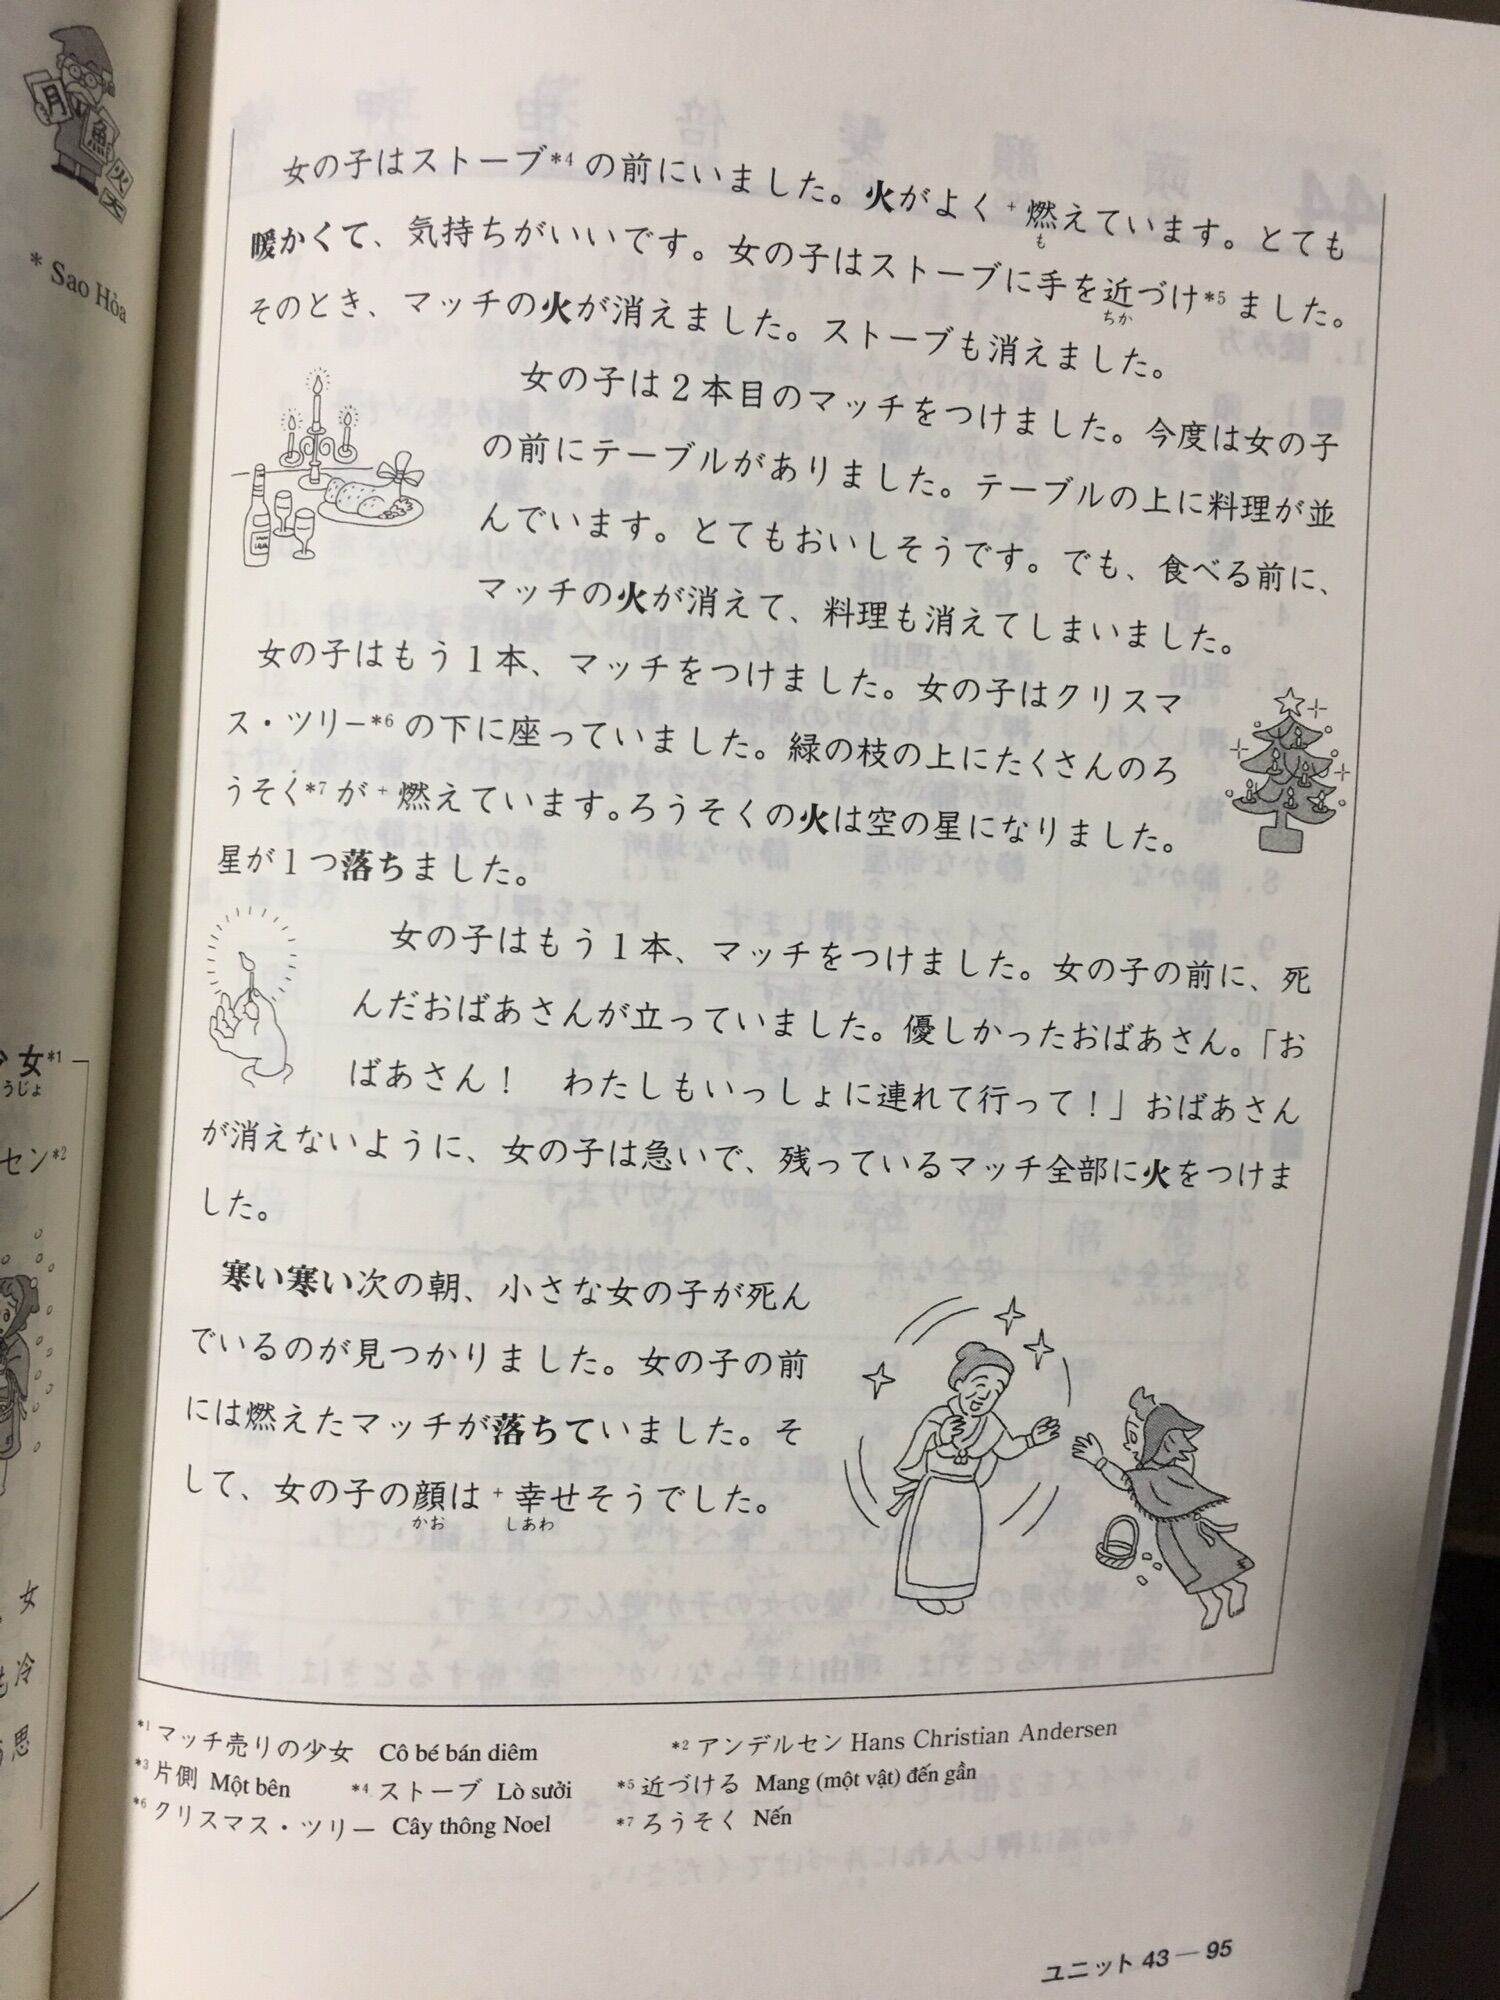 月
魚
火
天
* Sao Hỏa
女*1
うじょ
セン*2
女
冷
思
女の子はストーブ*4の前にいました。火がよく+燃えています。とても
も
暖かくて、気持ちがいいです。女の子はストーブに手を近づけ*5ました。
ちか
そのとき、マッチの火が消えました。ストーブも消えました。
女の子は2本目のマッチをつけました。今度は女の子
の前にテーブルがありました。テーブルの上に料理が並
んでいます。とてもおいしそうです。でも、食べる前に、
マッチの火が消えて、料理も消えてしまいました。
女の子はもう1本、マッチをつけました。女の子はクリスマ
ス・ツリー*6の下に座っていました。緑の枝の上にたくさんのろ
うそく*7が+燃えています。ろうそくの火は空の星になりました。
星が1つ落ちました。
女の子はもう1本、マッチをつけました。女の子の前に、死
んだおばあさんが立っていました。優しかったおばあさん。「お
ばあさん！　わたしもいっしょに連れて行って！」おばあさん
が消えないように、女の子は急いで、残っているマッチ全部に火をつけま
した。
寒い寒い次の朝、小さな女の子が死ん
でいるのが見つかりました。女の子の前
には燃えたマッチが落ちていました。そ
して、女の子の顔は+幸せそうでした。
かお しあわ
*1マッチ売りの少女 Cô bé bán diêm *2アンデルセン Hans Christian Andersen
*3片側 Một bên *4ストーブ Lò sưởi *5近づける Mang (một vật) đến gần
*6クリスマス・ツリー Cây thông Noel *7ろうそく Nến
ユニット 43 — 95